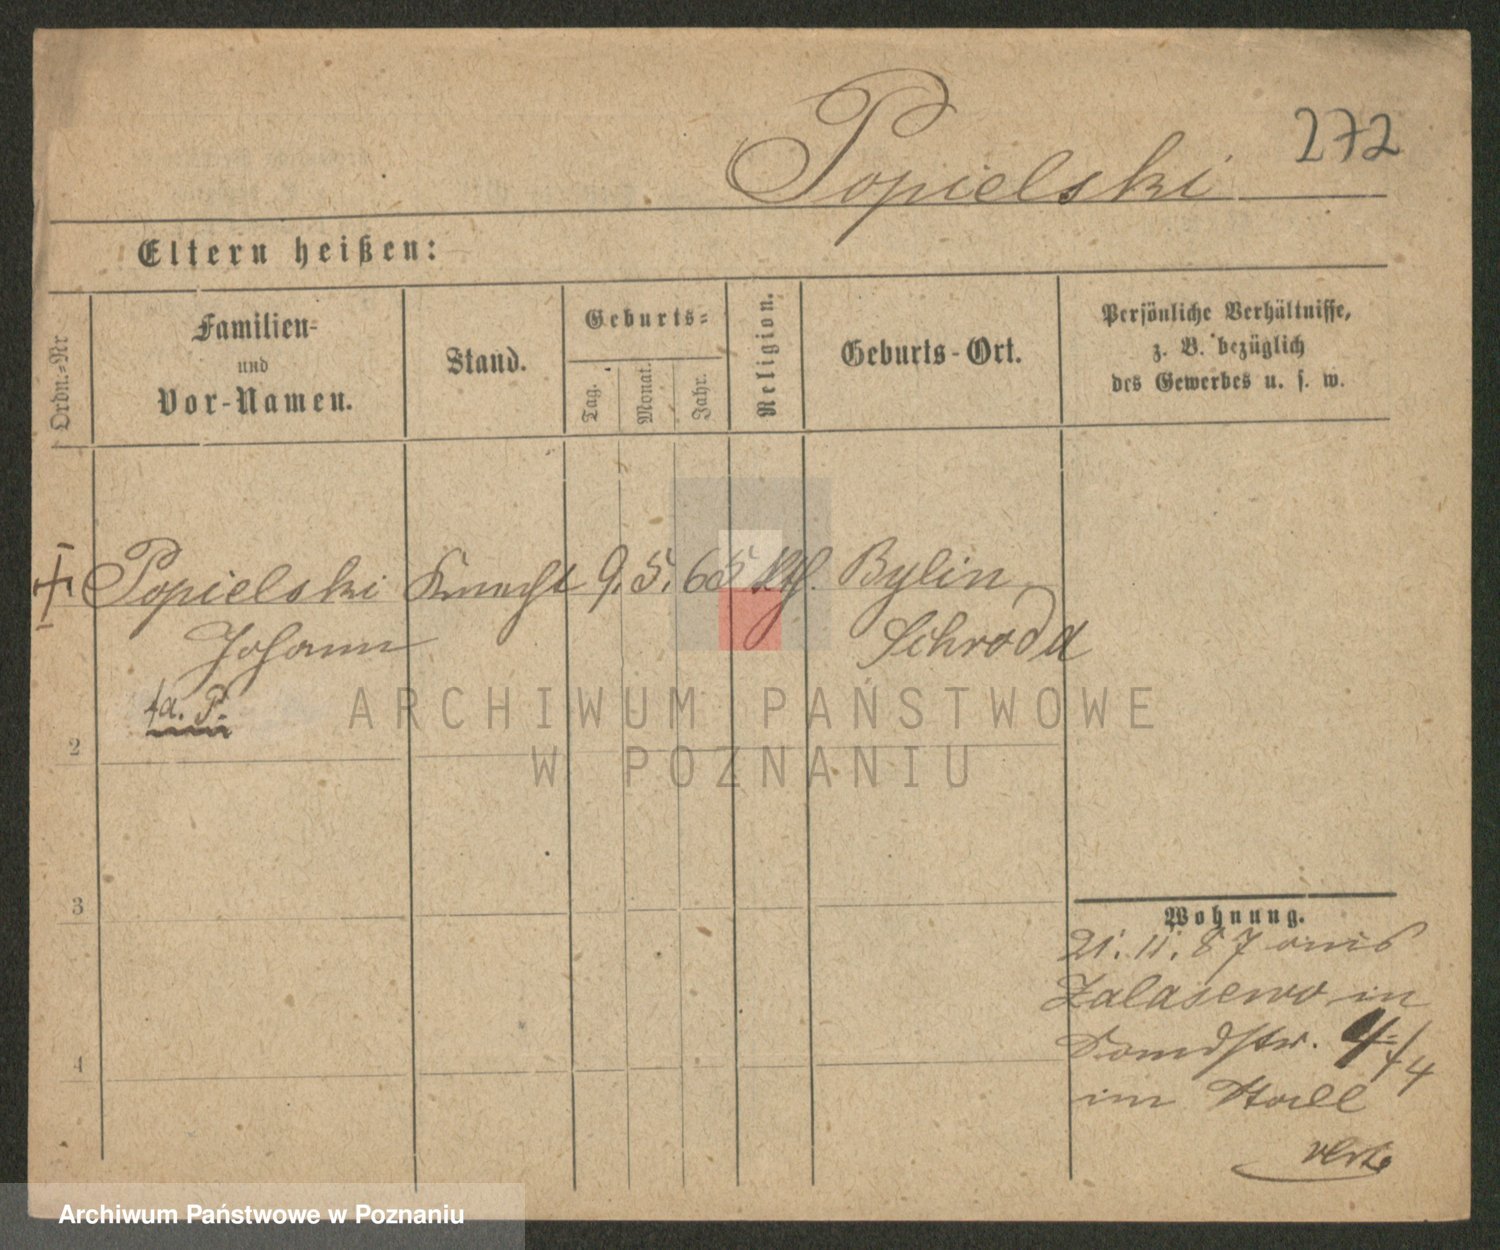 Popielski
272
Eltern heißen:
Ordn.=Nr
Familien-
und
Vor-Namen.
Stand.
Geburts=
Tag.
Monat.
Jahr.
Religion.
Geburts-Ort.
Persönliche Verhältnisse,
z. B. bezüglich
des Gewerbes u. s. w.
Popielski Knecht 9. 5. 65 kth. Bylin
Johann Schroda
a. P.
2
3
4
Wohnung.
21. 11. 87 aus
Zalasewo in
im Stall
ARCHIWUM PAŃSTWOWE
W POZNANIU
Archiwum Państwowe w Poznaniu